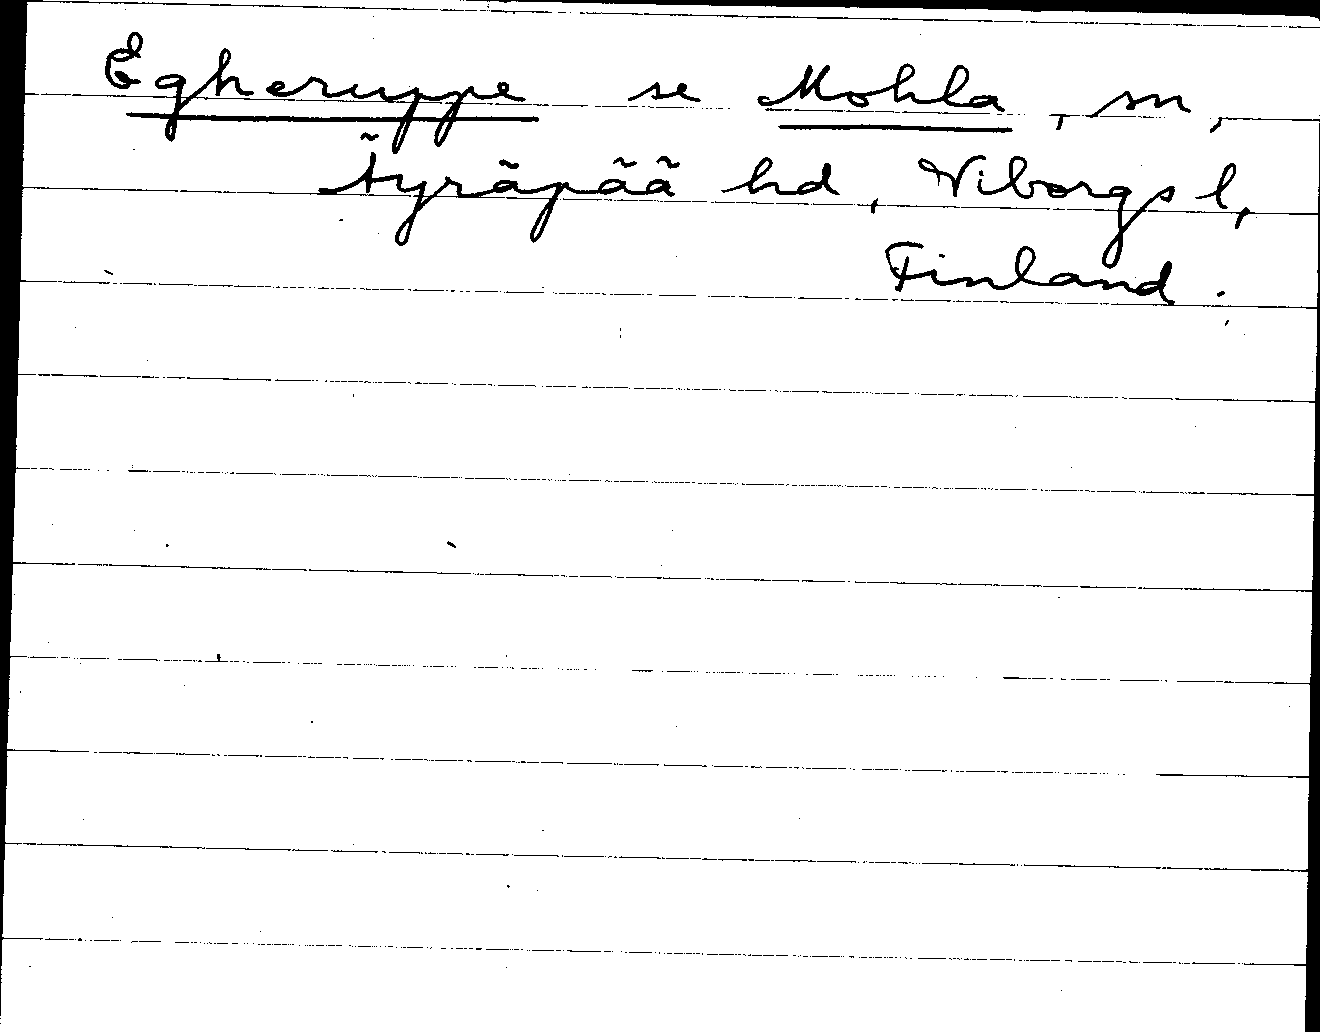 Egheruppe se Mohla, sn,
Äyräpää hd, Viborgs l,
Finland.